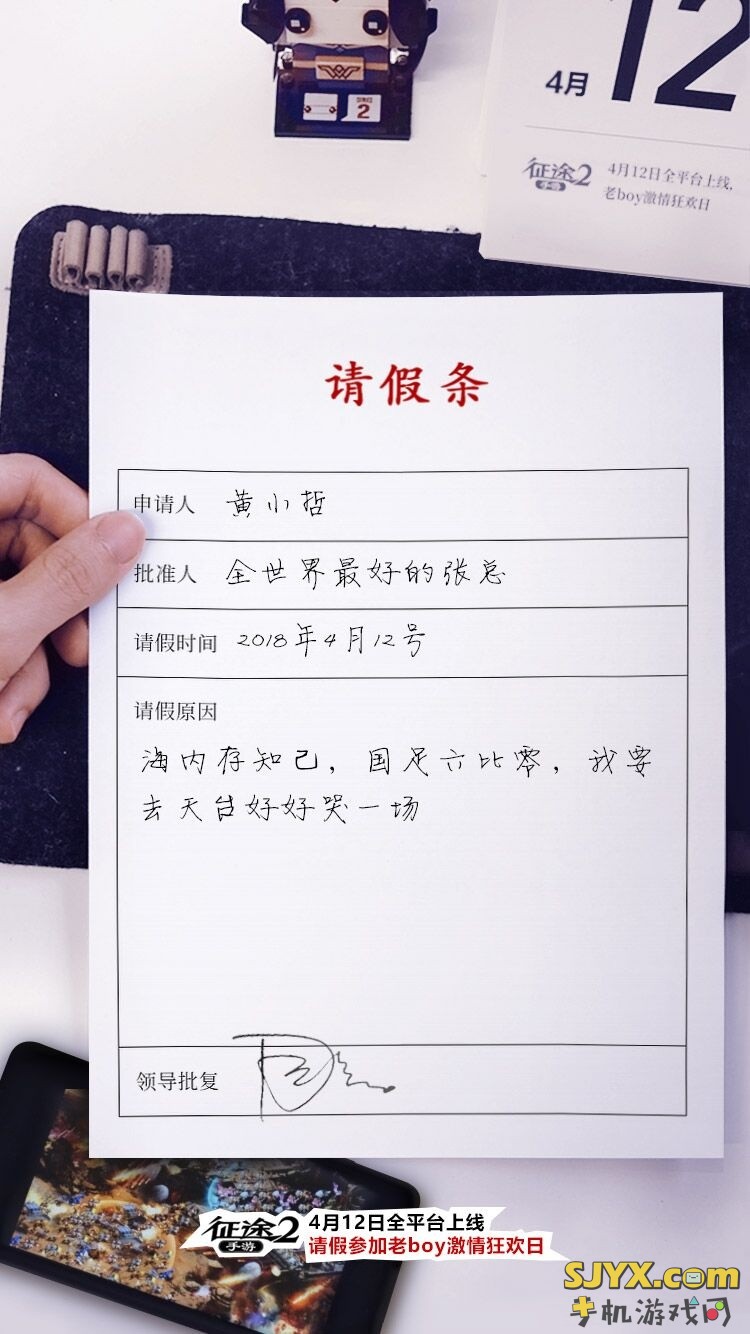 2
4月
12
征途2
手游
4月12日全平台上线,
老boy激情狂欢日
请假条
申请人 黄小哲
批准人 全世界最好的张总
请假时间 2018年4月12号
请假原因
海内存知己，国足六比零，我要
去天台好好哭一场
领导批复
征途2
手游
4月12日全平台上线
请假参加老boy激情狂欢日
SJYX.com
手机游戏网